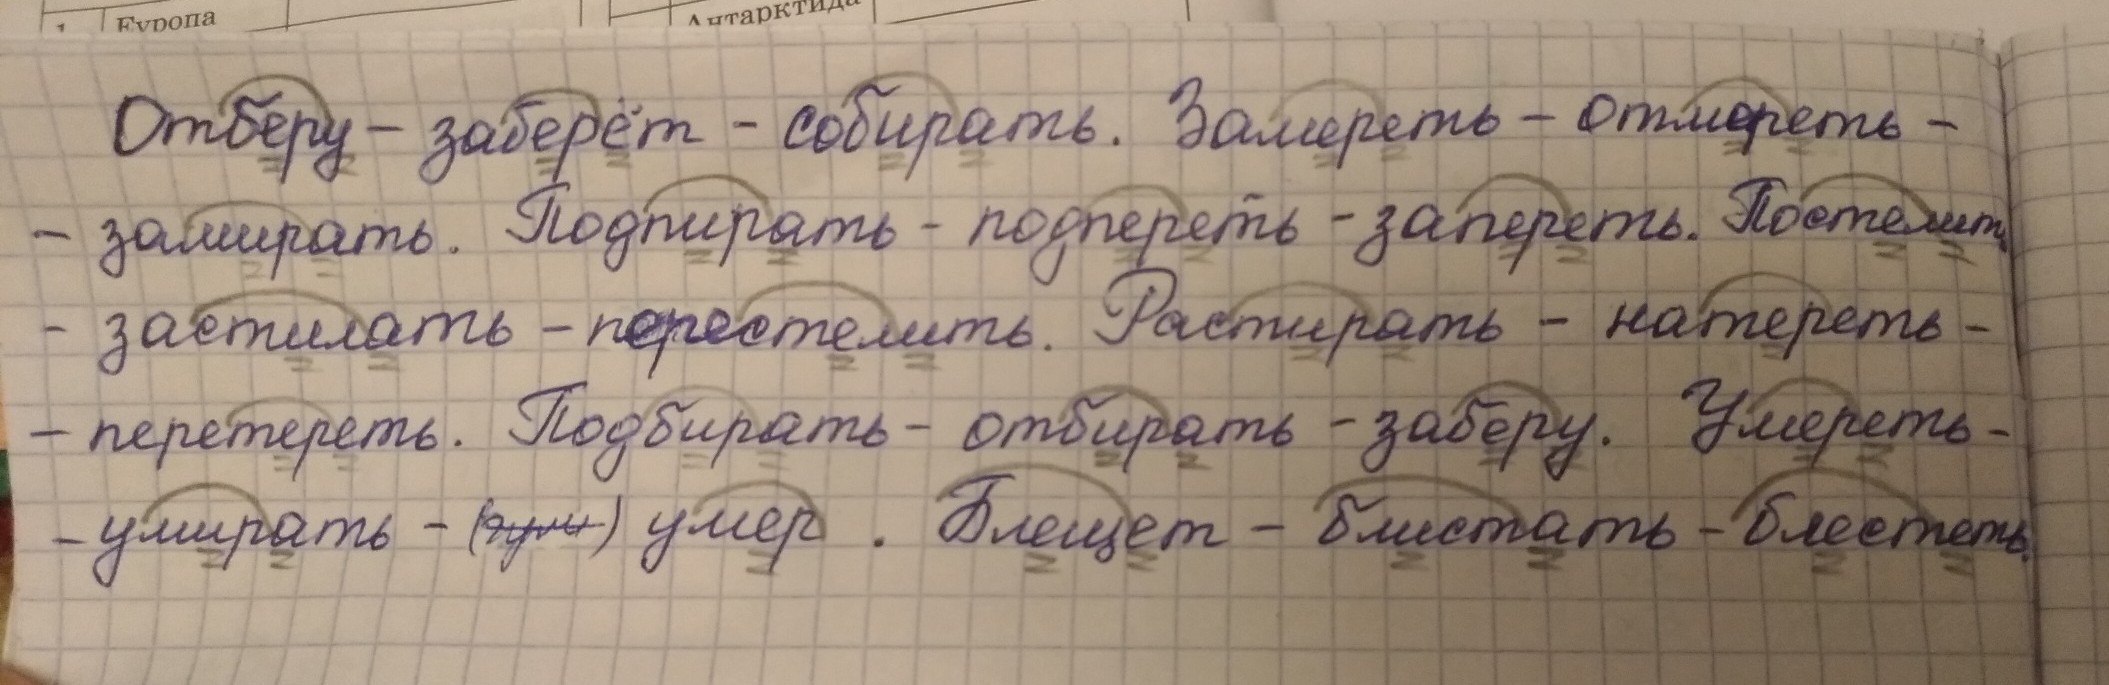 1 Европа Антарктида
Отберу – заберёт – собирать. Замереть – отмереть –
– замирать. Подпирать – подпереть – запереть. Постелить
– застилать – перестелить. Растирать – натереть –
– перетереть. Подбирать – отбирать – заберу. Умереть –
– умирать – ( ) умер. Блещет – блистать – блестеть.